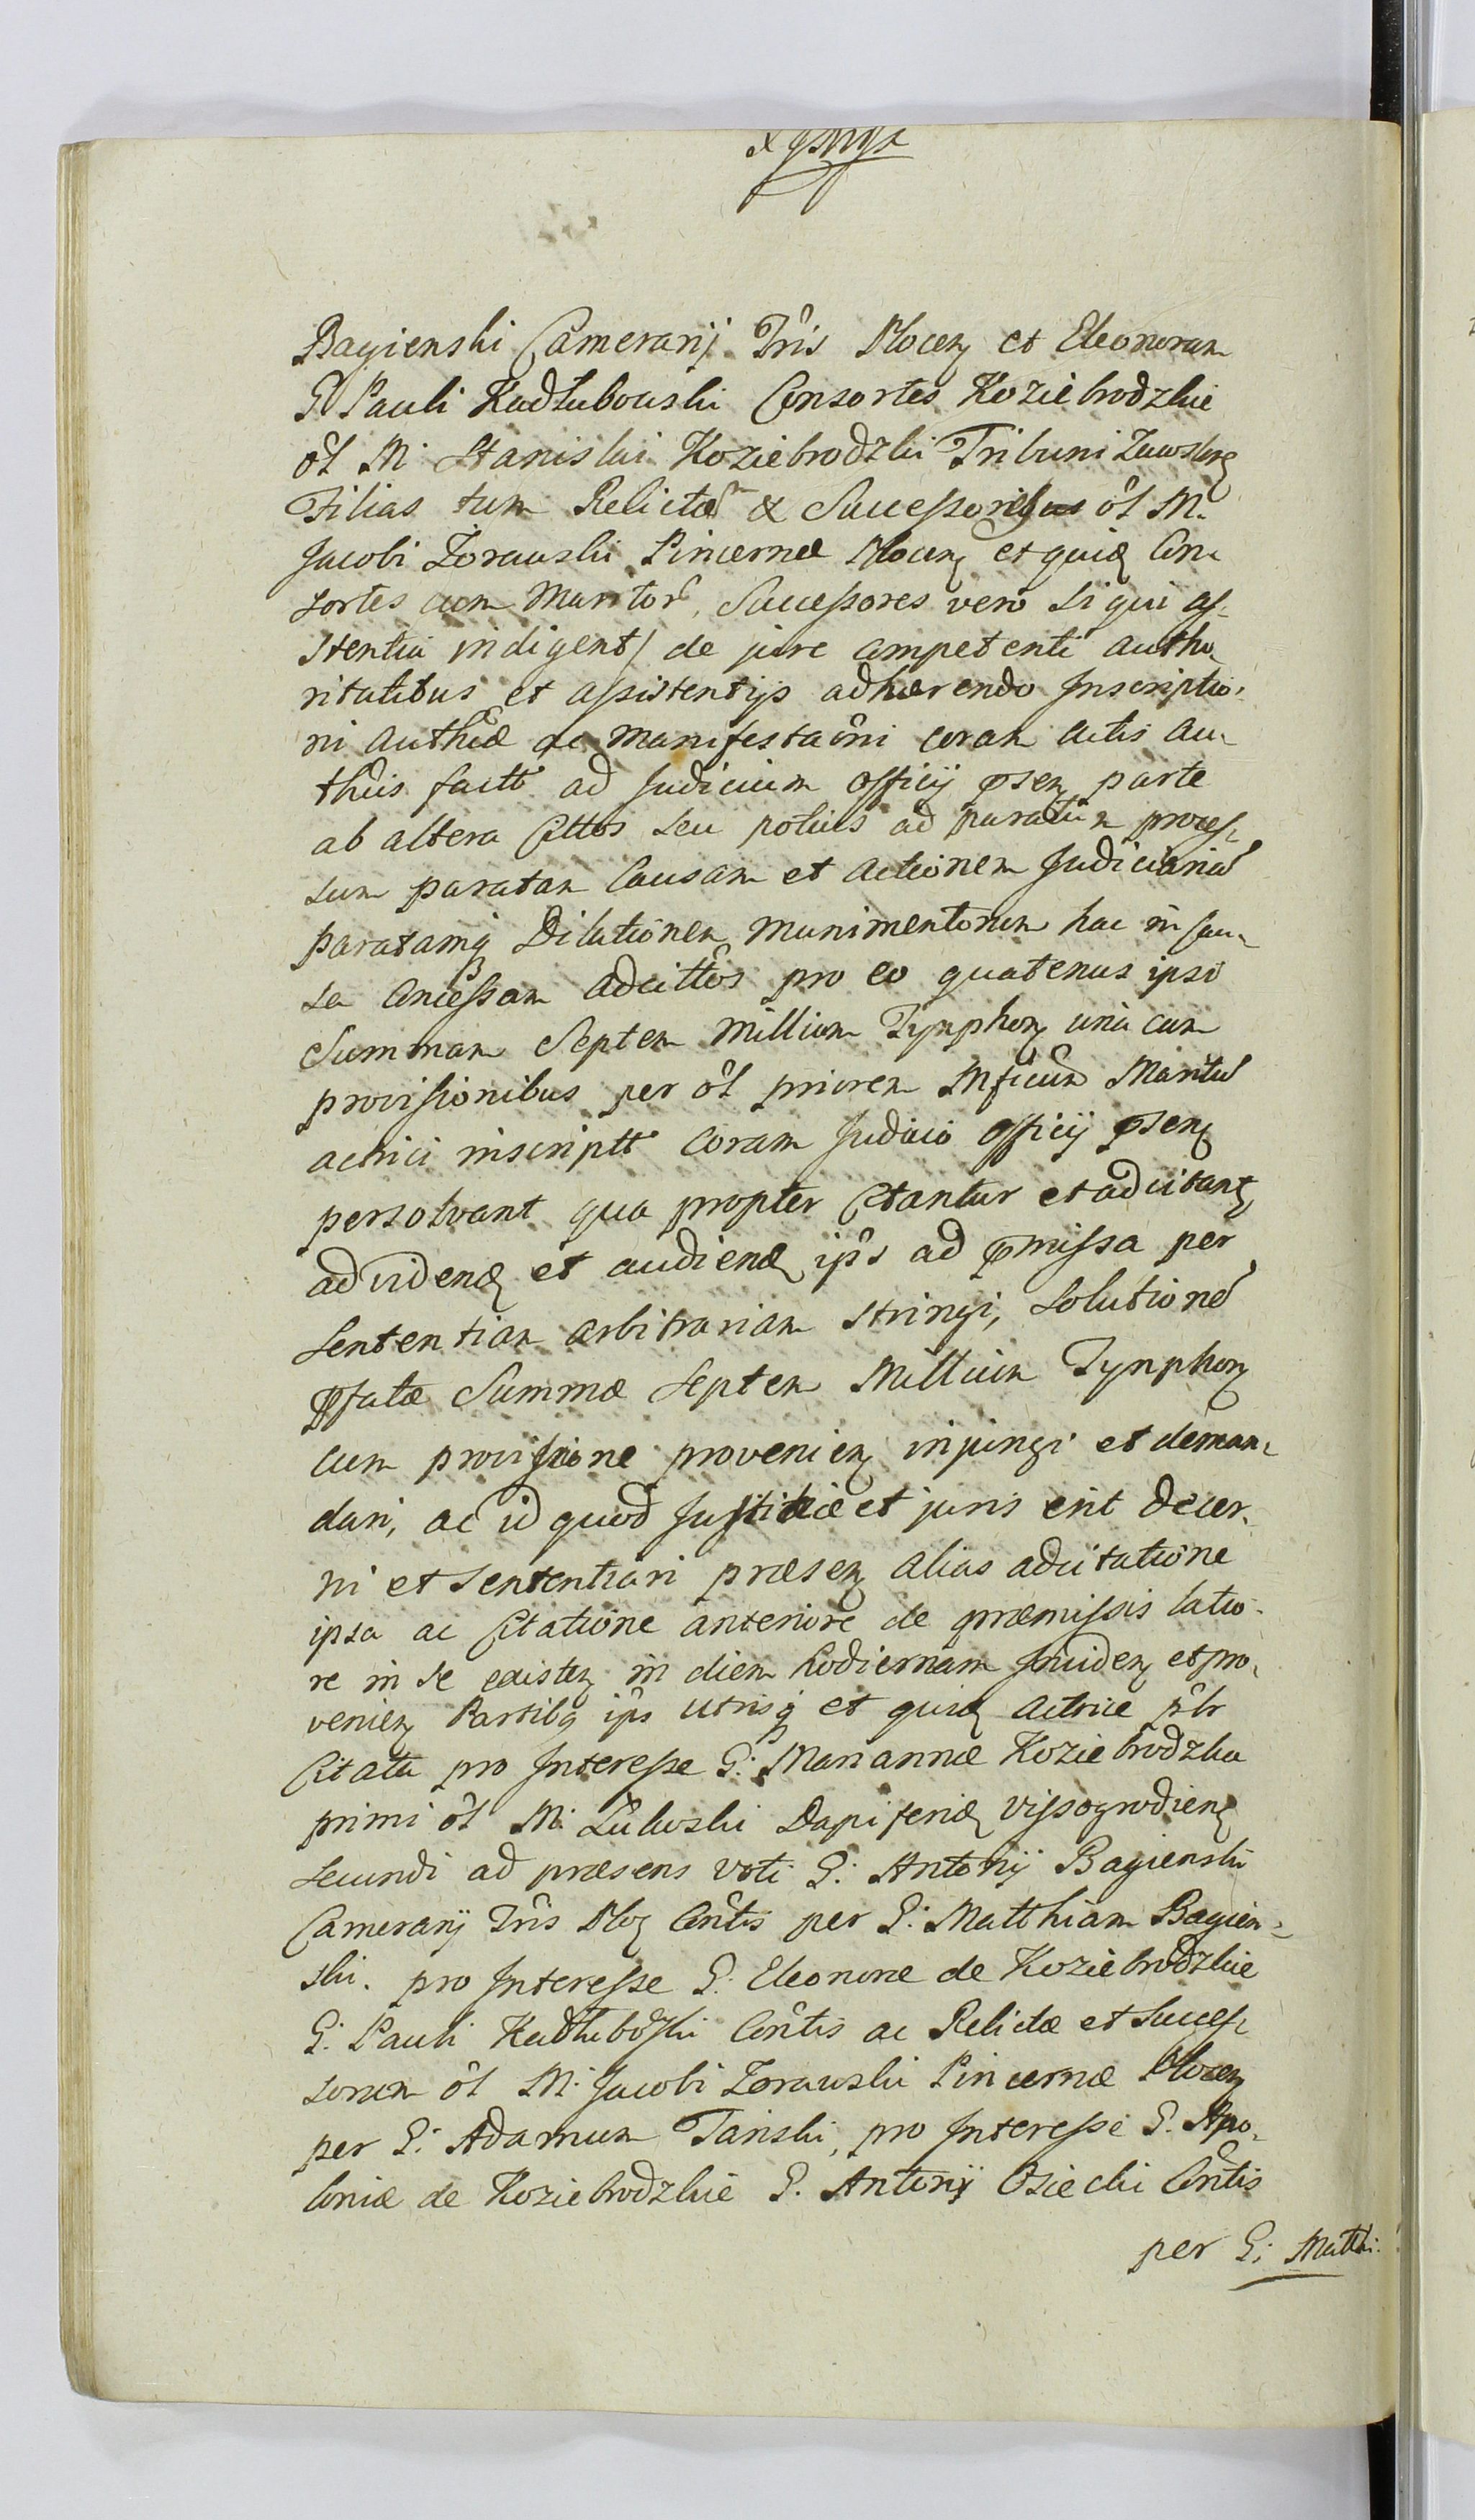 Bagienski Camerarij Tris Plocen et Eleonoram
G Pauli Kadłubowski Consortes Koziebrodzkie
ol M. Stanislai Koziebrodzki Tribuni Zawskren
Filias tum Relictam & Successoribus ol M.
Jacobi Zorawski Pincernæ Plocen et quid Con-
sortes cum Maritor, Successores vero si qui as-
stentia indigent/ de jure competenti autho-
ritatibus et assistentijs adhærendo Inscriptio-
ni authcæ ac Manifestaoni coram actis au-
thcis factt ad Judicium Officij psen parte
ab altera Cttos seu potius ad paratum proces-
sum paratam Causam et actionem Judiciariam
paratamq Dilationem Munimentorum hac in Cau-
sa Concessam adcittos pro eo quatenus ipsi
Summam Septem Millium Tynphon una cum
provisionibus per ol priorem Mficum Maritum
actrici inscriptt coram Judicio Officij psen
persolvant qua propter Citantur et adcitant
ad viden et audiend ips ad pmissa per
Sententiam arbitrariam stringi, solutionem
pfatæ Summæ Septem Millium Tynphon
cum provisione provenien injungi et deman-
dari, ac id quod Justitiæ et juris erit decer-
ni et sententiari præsen alias adcitatione
ipsa ac Citatione anteriore de præmissis latio-
re in se existen in diem hodiernam Inciden et pro-
venien Partibq ips utrisq et quid actrice plr
Citata pro Interesse G. Mariannæ Koziebrodzka
primi ol M. Żukowski Dapiferid Vissogrodien
secundi ad præsens voti G. Antonij Bagienski
Camerarij Tris Ploc Contis per G. Matthiam Bagien-
ski. pro Interesse G. Eleonoræ de Koziebrodzkie
G. Pauli Kadłubowski Contis ac Relictæ et Succes-
sorum ol M. Jacobi Zorawski Pincernæ Plocen
per G. Adamum Tanski, pro Interesse G. Apo-
loniæ de Koziebrodzkie G. Antonij Osiecki Contis
per G: Matthi.